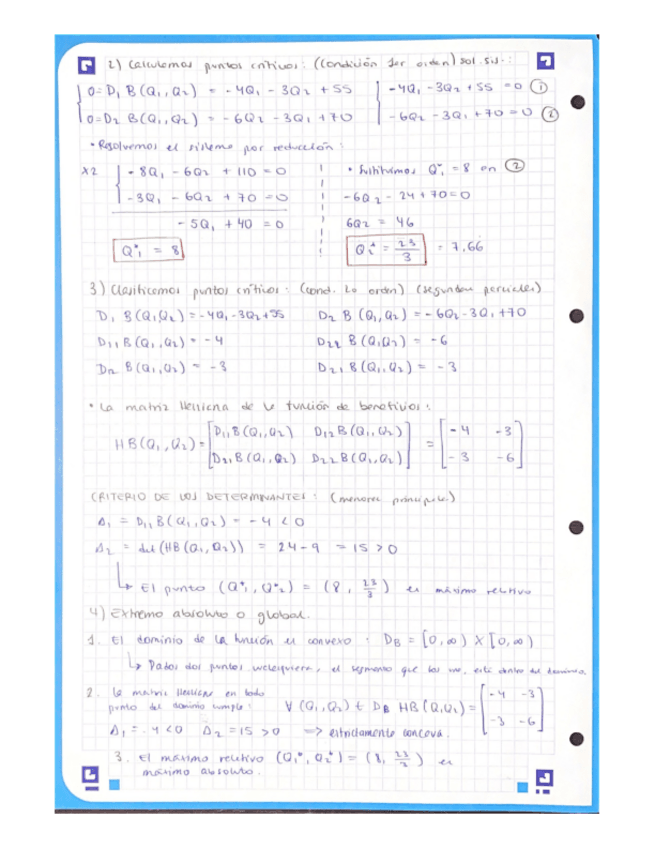 2) Calculamos puntos críticos: (condición 1er orden) sol. sis.:
0=D₁ B(Q₁,Q₂) = -4Q₁ - 3Q₂ + 55 -4Q₁ -3Q₂ + 55 = 0 ①
0=D₂ B(Q₁,Q₂) = -6Q₂ - 3Q₁ + 70 -6Q₂ -3Q₁ + 70 = 0 ②
• Resolvemos el sistema por reducción:
x2 -8Q₁ - 6Q₂ + 110 = 0 • Sustituimos Q₁* = 8 en ②
-3Q₁ - 6Q₂ + 70 = 0 -6Q₂ - 24 + 70 = 0
-5Q₁ + 40 = 0 6Q₂ = 46
Q₁* = 8 Q₂* = 23/3 = 7,66
3) Clasificamos puntos críticos: (cond. 2o orden) (segundas parciales)
D₁ B(Q₁,Q₂) = -4Q₁ - 3Q₂ + 55 D₂ B(Q₁,Q₂) = -6Q₂ - 3Q₁ + 70
D₁₁ B(Q₁,Q₂) = -4 D₂₂ B(Q₁,Q₂) = -6
D₁₂ B(Q₁,Q₂) = -3 D₂₁ B(Q₁,Q₂) = -3
• La matriz Hessiana de la función de beneficios:
HB(Q₁,Q₂) = [D₁₁B(Q₁,Q₂) D₁₂B(Q₁,Q₂)] = [-4 -3]
[D₂₁B(Q₁,Q₂) D₂₂B(Q₁,Q₂)] [-3 -6]
CRITERIO DE LOS DETERMINANTES: (menores principales)
Δ₁ = D₁₁ B(Q₁,Q₂) = -4 < 0
Δ₂ = det (HB(Q₁,Q₂)) = 24 - 9 = 15 > 0
↳ El punto (Q₁*, Q₂*) = (8, 23/3) es máximo relativo
4) Extremo absoluto o global.
1. El dominio de la función es convexo: D_B = [0,∞) X [0,∞)
↳ Dados dos puntos cualesquiera, el segmento que los une, está dentro del dominio.
2. La matriz Hessiana en todo
punto del dominio cumple: ∀ (Q₁,Q₂) ∈ D_B HB(Q₁,Q₂) = [-4 -3]
[-3 -6]
Δ₁ = -4 < 0 Δ₂ = 15 > 0 => estrictamente concava.
3. El máximo relativo (Q₁*, Q₂*) = (8, 23/2) es
máximo absoluto.